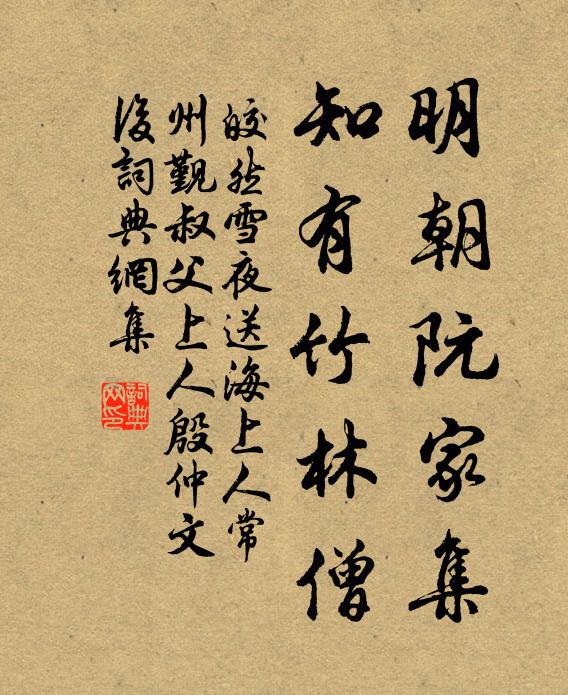 明朝阮家集
知有竹林僧
皎然雪夜送海上人常
州觐叔父上人殷仲文
後詞典網集
詞典
网印